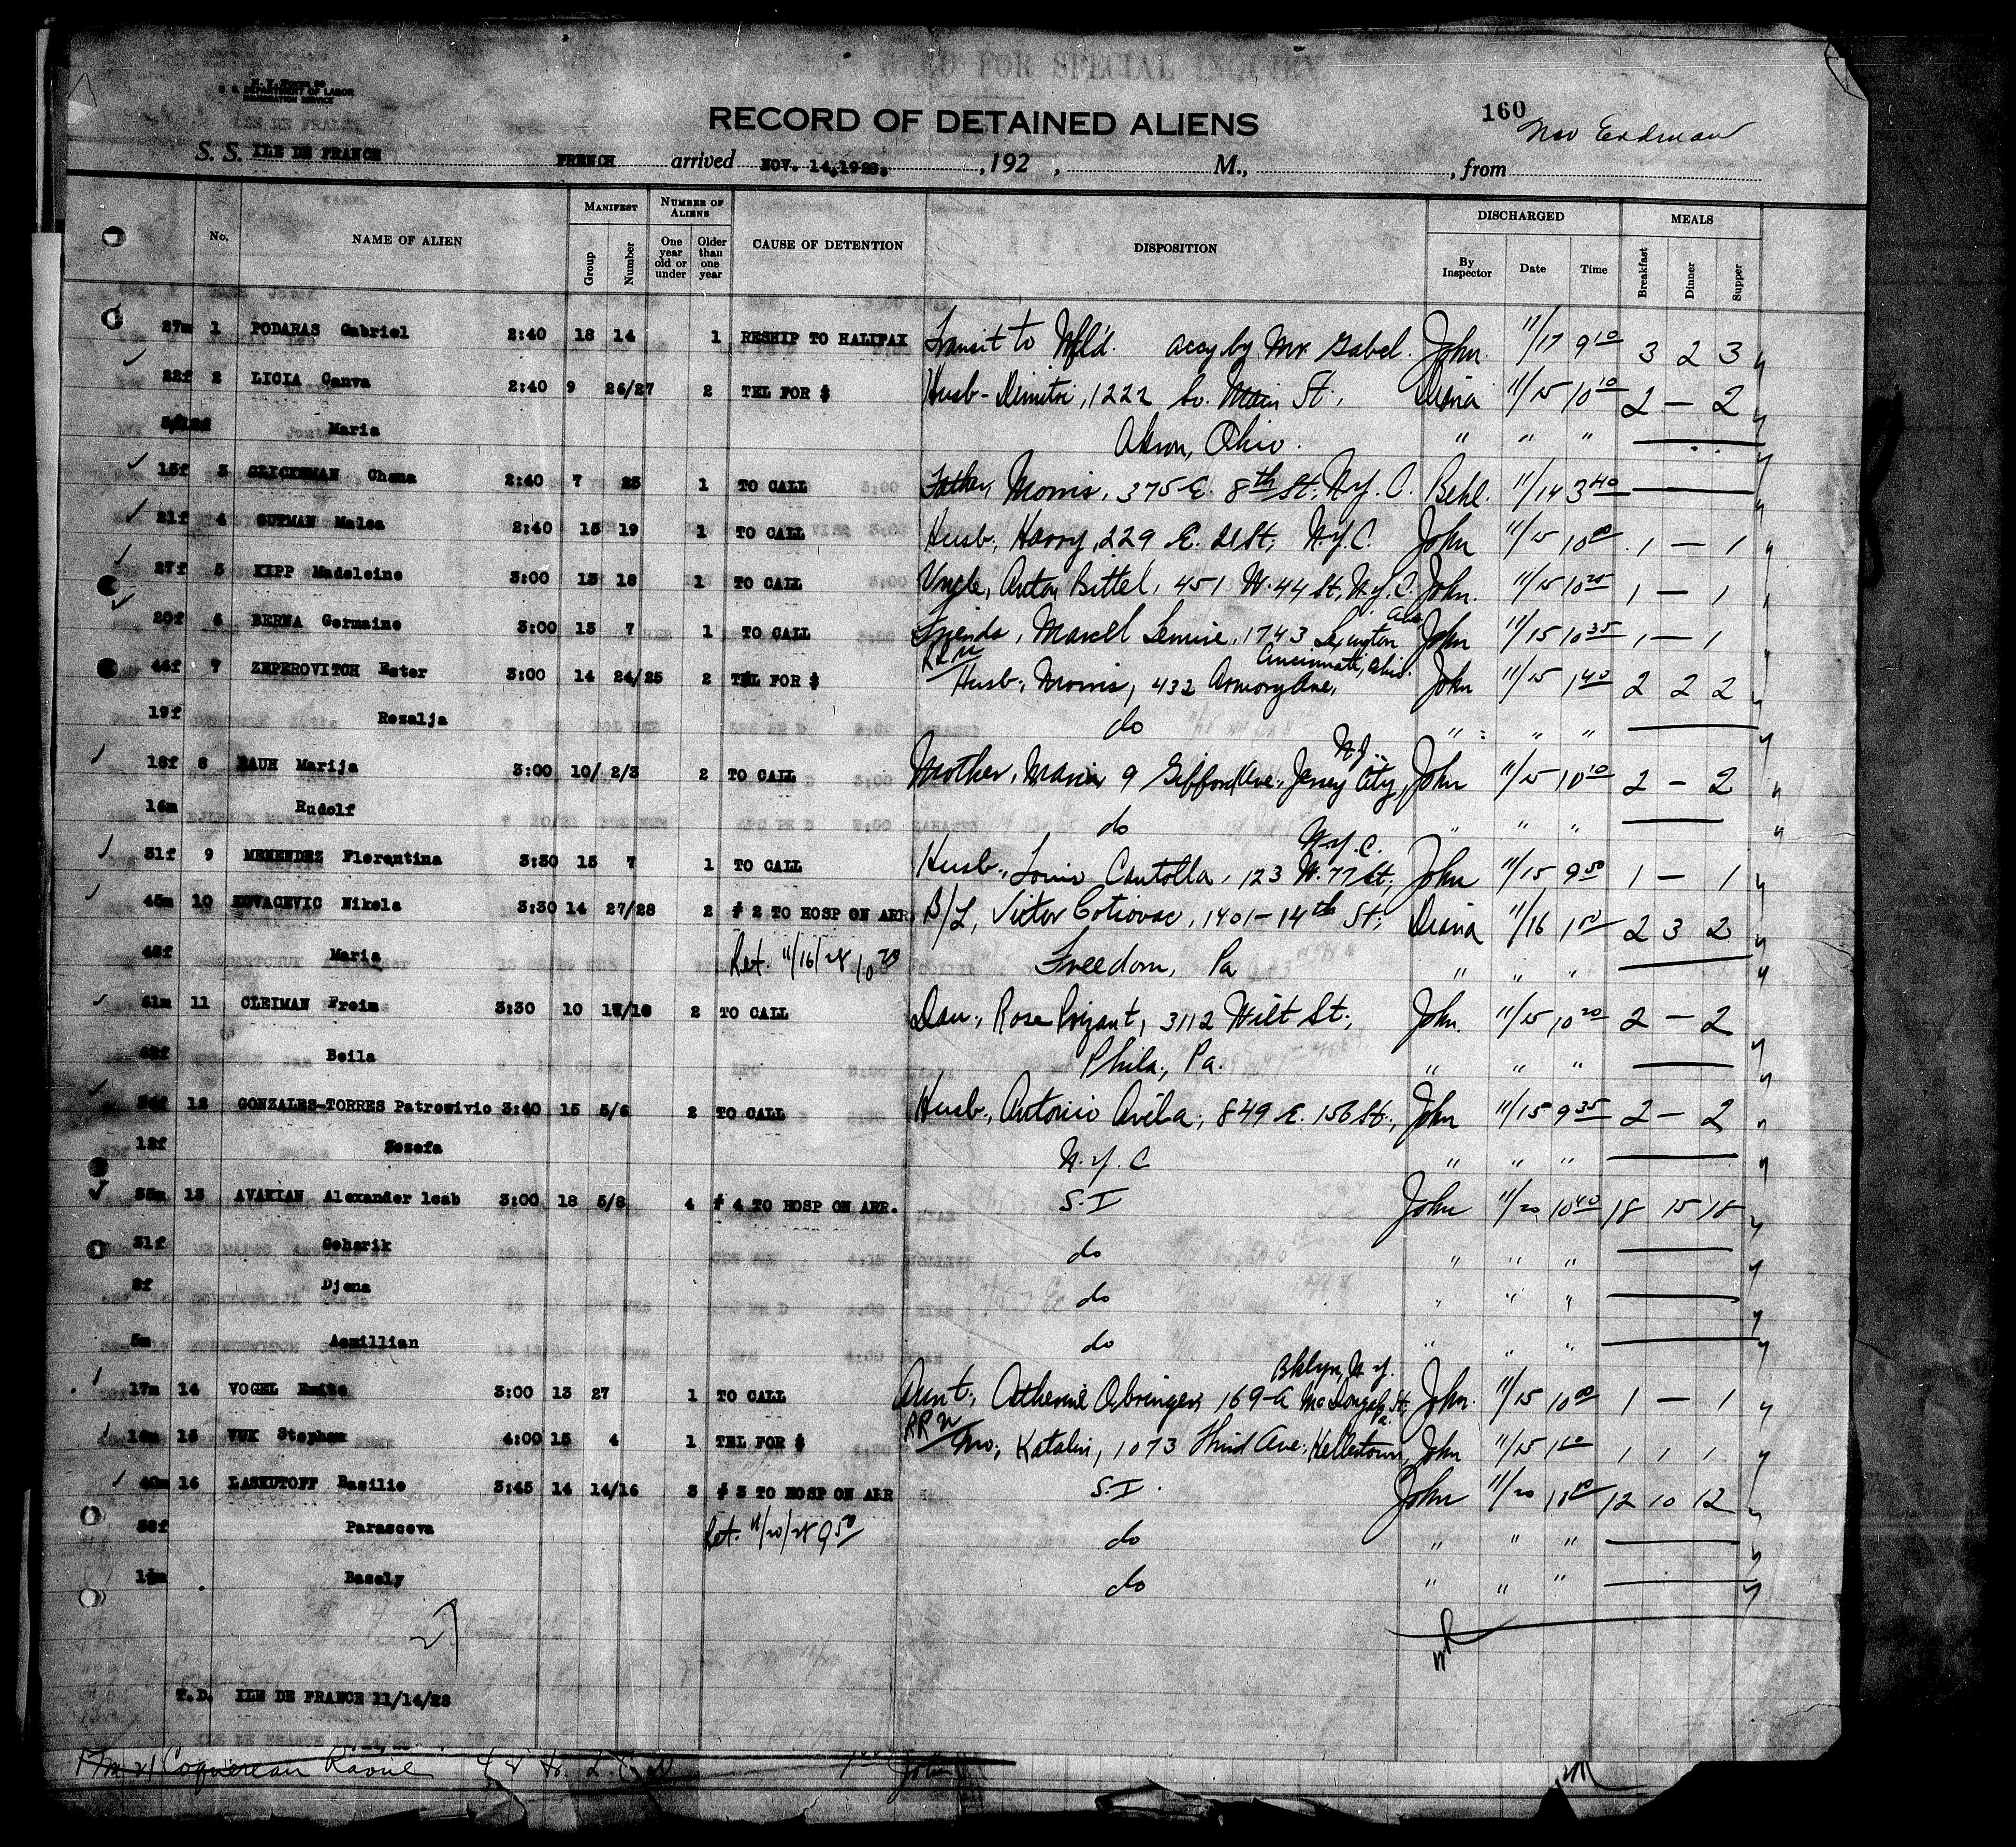 HELD FOR SPECIAL INQUIRY
U. S. DEPARTMENT OF LABOR
IMMIGRATION SERVICE
RECORD OF DETAINED ALIENS
160
S. S. ILE DE FRANCE FRENCH arrived NOV. 14,1928. , 192 , M., , from
No. NAME OF ALIEN MANIFEST Group Number NUMBER OF ALIENS One year old or under Older than one year CAUSE OF DETENTION DISPOSITION DISCHARGED By Inspector Date Time MEALS Breakfast Dinner Supper
27m 1 PODARAS Gabriel 2:40 18 14 1 RESHIP TO HALIFAX Transit to Nfl'd. accy by Mr Gabel. John. 11/17 9 10 3 2 3
22f 2 LICIA Canva 2:40 9 26/27 2 TEL FOR $ Husb- Dimitri, 1222 So. Main St., Diana 11/15 10 10 2 — 2
Maria Akron, Ohio. " " "
15f 3 GLICKSMAN Chana 2:40 7 25 1 TO CALL Father, Morris, 375 E. 8th St, N.Y.C. Behl. 11/14 3 40
21f 4 GUTMAN Malea 2:40 15 19 1 TO CALL Husb., Harry, 229 E. 21 St, N.Y.C. John 11/15 10 00 1 — 1
27f 5 KIPP Madeleine 3:00 13 18 1 TO CALL Uncle, Anton Bittel, 451 W. 44 St, N.Y.C. John. 11/15 10 25 1 — 1
20f 6 BERNA Germaine 3:00 13 7 1 TO CALL Friends, Marcel Lemire, 1743 Lexington Ave John 11/15 10 35 1 — 1
46f 7 ZEPEROVITCH Ester 3:00 14 24/25 2 TEL FOR $ Husb., Morris, 432 Armory Ave, Cincinnati, Ohio. John 11/15 1 40 2 2 2
19f Rozalja do " " "
18f 8 RAUH Marija 3:00 10/ 2/3 2 TO CALL Mother, Maria 9 Gifford Ave., Jersey City, N.J. John 11/15 10 10 2 — 2
16m Rudolf do " " "
31f 9 MENENDEZ Florentina 3:30 15 7 1 TO CALL Husb., Louis Cantolla, 123 W. 77 St, N.Y.C. John 11/15 9 50 1 — 1
45m 10 KOVACEVIC Nikola 3:30 14 27/28 2 # 2 TO HOSP ON ARR. B/L, Victor Cotiovac, 1401-14th St; Diana 11/16 1 50 2 3 2
Maria Ret. 11/16/28 10 20 Freedom, Pa " " "
61m 11 CLEIMAN Froim 3:30 10 17/18 2 TO CALL Dau., Rose Prizant, 3112 Wilt St., John. 11/15 10 20 2 — 2
Beila Phila., Pa. " " "
12 GONZALES-TORRES Patrosivio 3:40 15 5/6 2 TO CALL Husb., Antonio Avila, 849 E. 156 St., John 11/15 9 35 2 — 2
12f Sozefa N.Y.C " " "
35m 13 AVAKIAN Alexander lsab 3:00 18 5/8 4 # 4 TO HOSP ON ARR. S.I John 11/20 10 40 18 15 18
31f Goharik do " " "
8f Djena do " " "
5m Aemillian do " " "
17m 14 VOGEL Emile 3:00 13 27 1 TO CALL Aunt, Catherine Obringer, 169-A McDougal St, Bklyn, N.Y. John. 11/15 10 00 1 — 1
15 VUK Stephan 4:00 15 4 1 TEL FOR $ Mo, Katalin, 1073 Third Ave., Pa. John 11/15 1 1 1
40m 16 LASKUTOFF Basilie 3:45 14 14/16 3 # 3 TO HOSP ON ARR S.I. John 11/20 12 10 12
38f Parasceva Ret. 11/20/28 9 50 do " " "
Basely do " " "
27
T.D. ILE DE FRANCE 11/14/28
Coquereau Raoul John